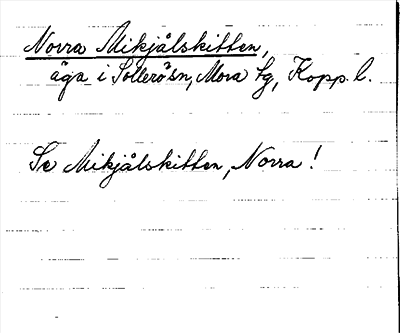 Norra Mikjålskitten,
äga i Sollerösn, Mora tg, Kopp. l.
Se Mikjålskitten, Norra!